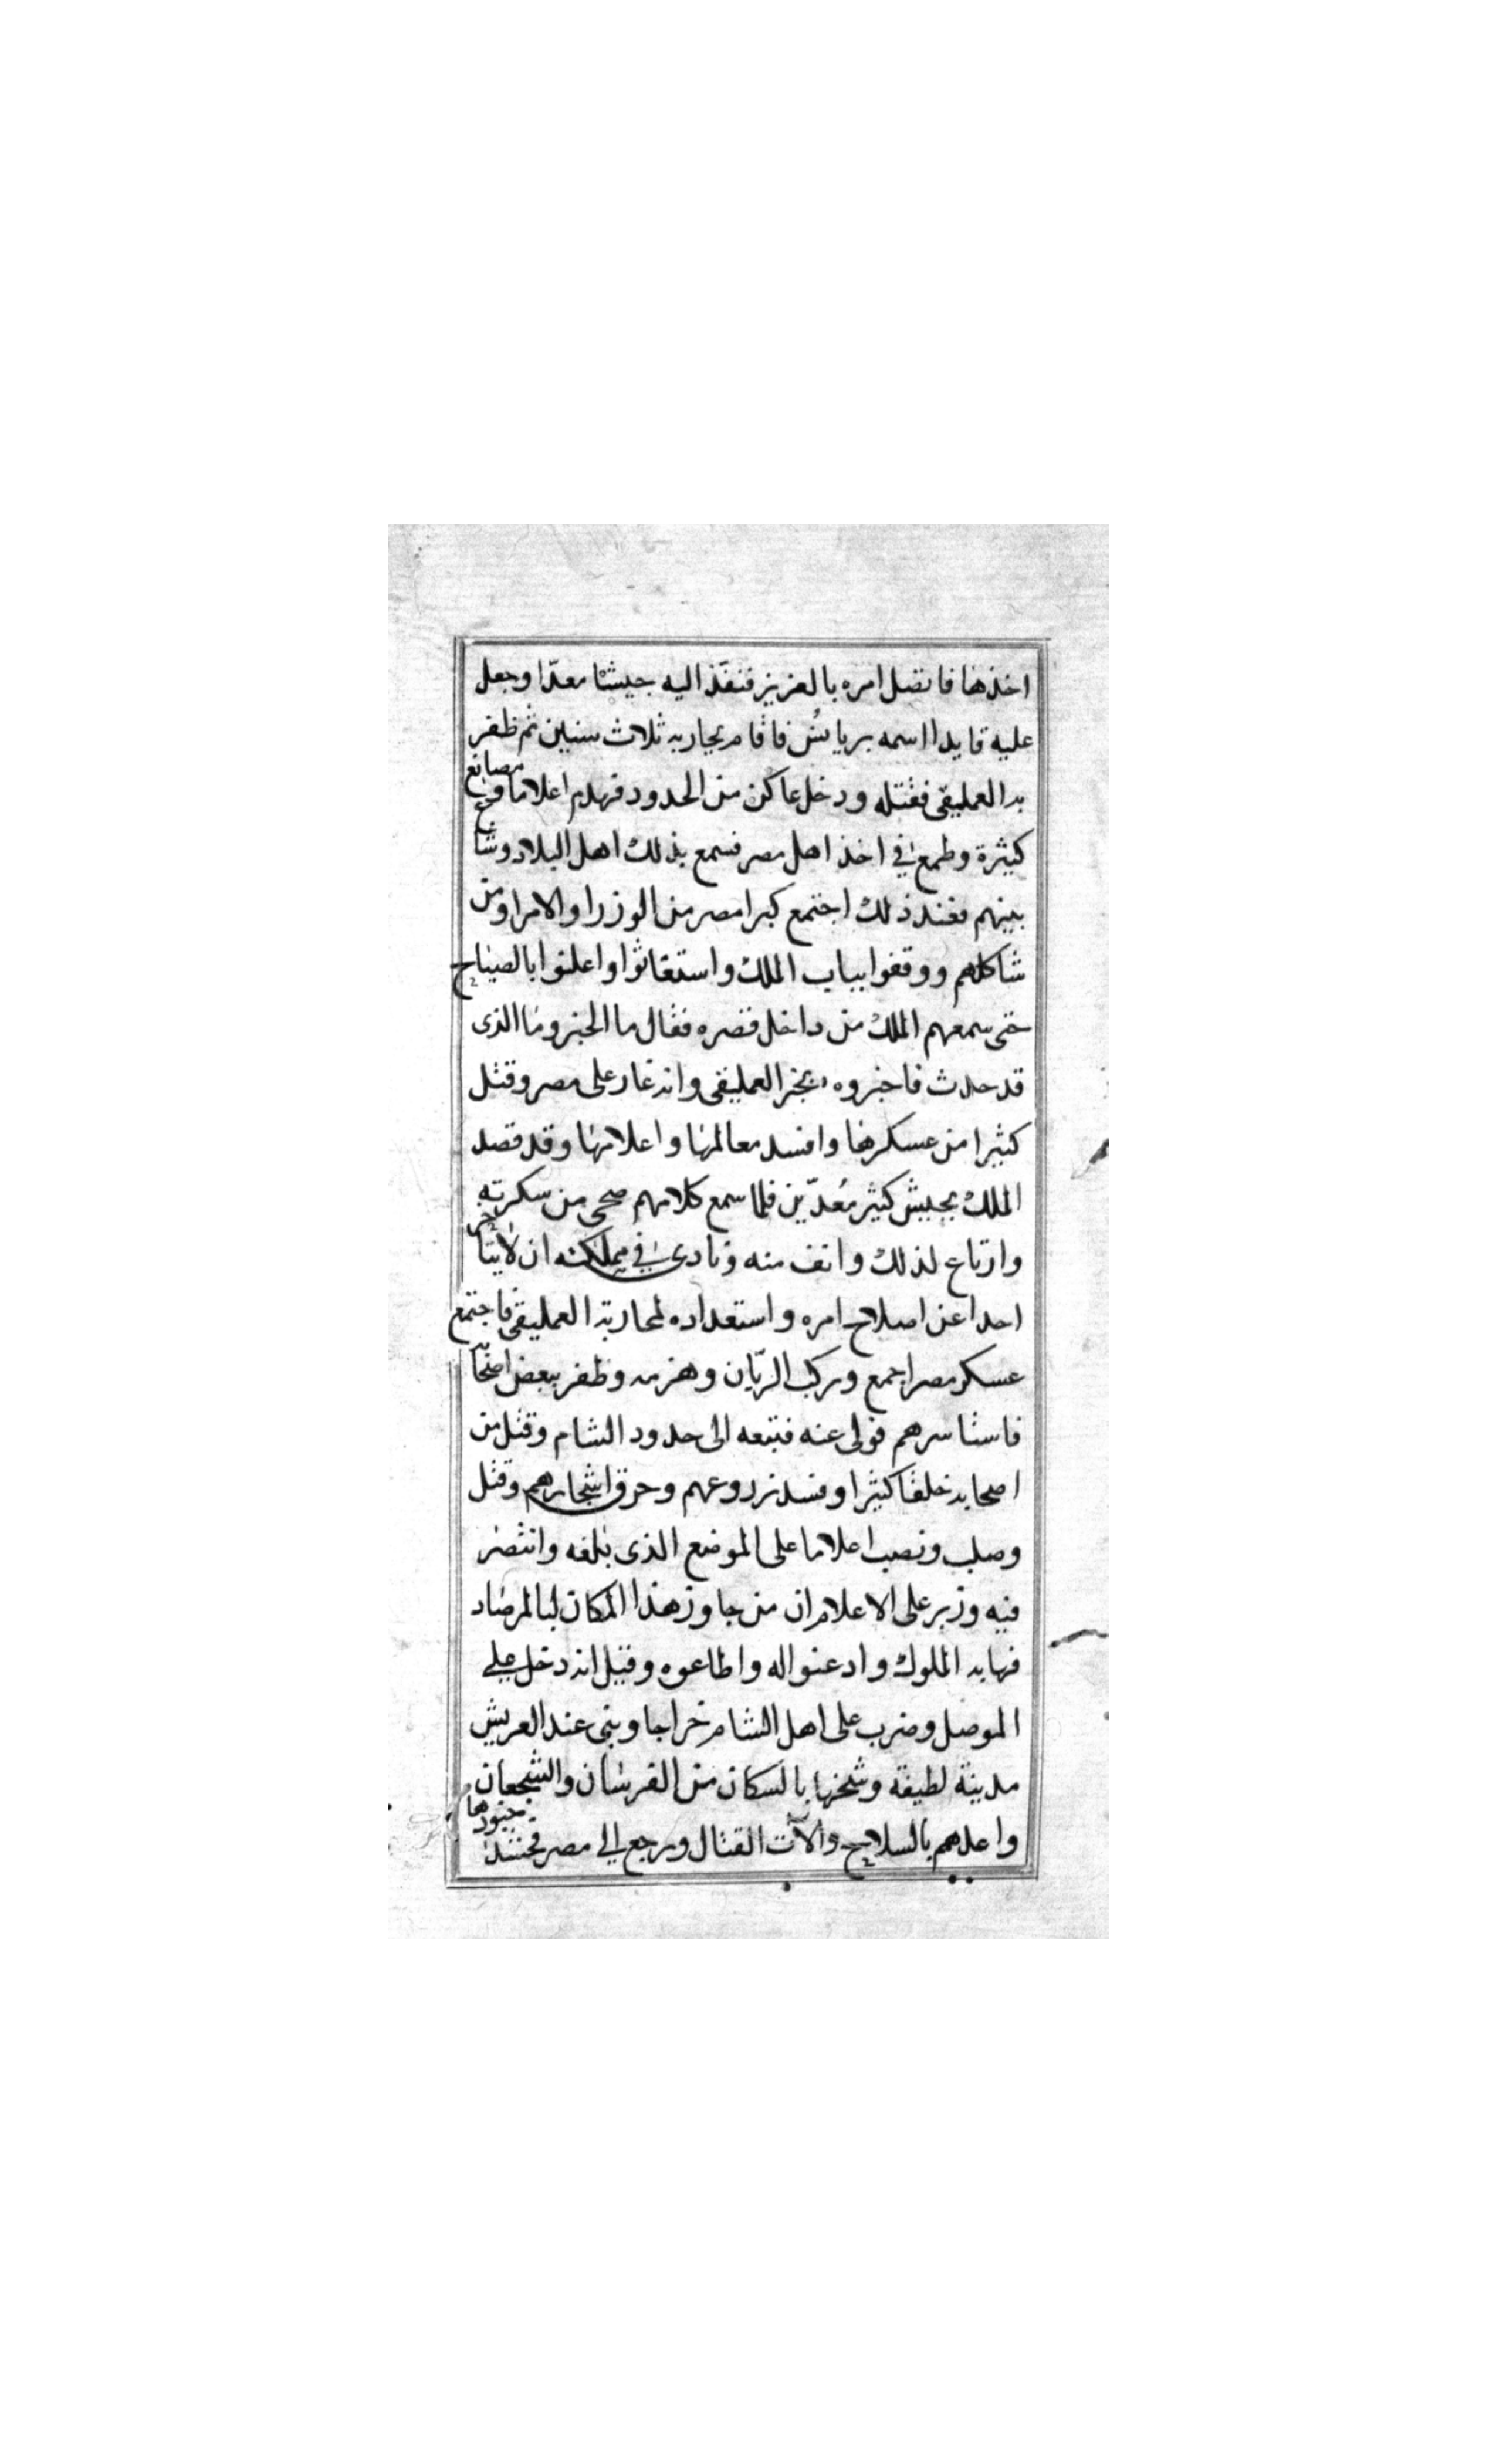 اخذها فاتصل امره بالعزيز فنفّذ اليه جيشا معدّا وجعل
عليه قايدا اسمه بريانُس فاقام يحاربه ثلاث سنين ثم ظفر
به العمليقي فقتله ودخل عاكن من الحدود فهدم اعلاما ومصانع
كثيرة وطمع في اخذ اهل مصر فسمع بذلك اهل البلاد وشاع
بينهم فعند ذلك اجتمع كبرا مصر من الوزرا والامرا ومن
شاكلهم ووقفوا بباب الملك واستغاثوا واعلنوا بالصياح
حتى سمعهم الملك من داخل قصره فقال ما الخبر وما الذى
قد حدث فاخبروه بخبر العمليقى وانه غار على مصر وقتل
كثيرا من عسكرها وافسد معالمها واعلامها وقد قصد
الملك بجيش كثير مُعدّين فلما سمع كلامهم صحى من سكرته
وارتاع لذلك وانف منه ونادى في مملكته ان لا يتاخر
احدا عن اصلاح امره واستعداده لمحاربة العمليقى فاجتمع
عسكر مصر اجمع وركب الريّان وهزمه وظفر ببعض اصحا
فاستاسرهم فولى عنه فتبعه الى حدود الشام وقتل من
اصحابه خلقا كثيرا وفسد زروعهم وحرق اشجارهم وقتل
وصلب ونصب اعلاما على الموضع الذى بلغه وانتصر
فيه وزبر على الاعلام ان من جاوز هذا المكان لبالمرصاد
فهابه الملوك وادعنوا له واطاعوه وقيل انه دخل على
الموصل وضرب على اهل الشام خراجا وبنى عند العريش
مدينة لطيفة وشحنها بالسكان من الفرسان والشجعان
واعدهم بالسلاح والآت القتال ورجع الي مصر فحشد جنودها